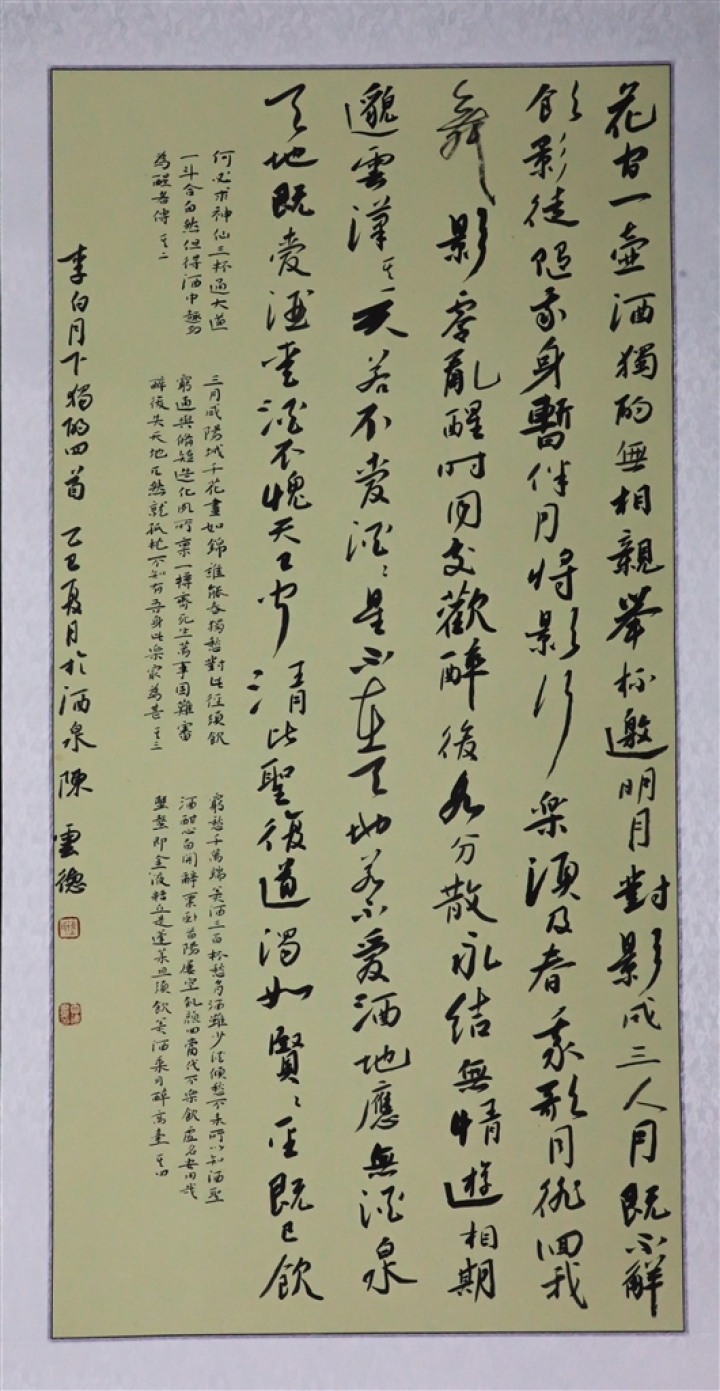 花間一壺酒獨酌無相親舉杯邀明月對影成三人月既不解
飲影徒隨我身暫伴月將影行樂須及春我歌月徘徊我
舞影零亂醒時同交歡醉後各分散永結無情遊相期
邈雲漢其一天若不愛酒〻星不在天地若不愛酒地應無酒泉
天地既愛酒愛酒不愧天已聞清比聖復道濁如賢〻聖既已飲
何必求神仙三杯通大道
一斗合自然但得酒中趣勿
為醒者傳 其二
三月咸陽城千花晝如錦誰能春獨愁對此徑須飲
窮通與脩短造化夙所稟一樽齊死生萬事固難審
醉後失天地兀然就孤枕不知有吾身此樂最為甚 其三
窮愁千萬端美酒三百杯愁多酒雖少酒傾愁不來所以知酒聖
酒酣心自開辭粟臥首陽屢空飢顏回當代不樂飲虛名安用哉
蟹螯即金液糟丘是蓬萊且須飲美酒乘月醉高臺 其四
李白月下獨酌四首 乙巳夏月於酒泉 陳雲德